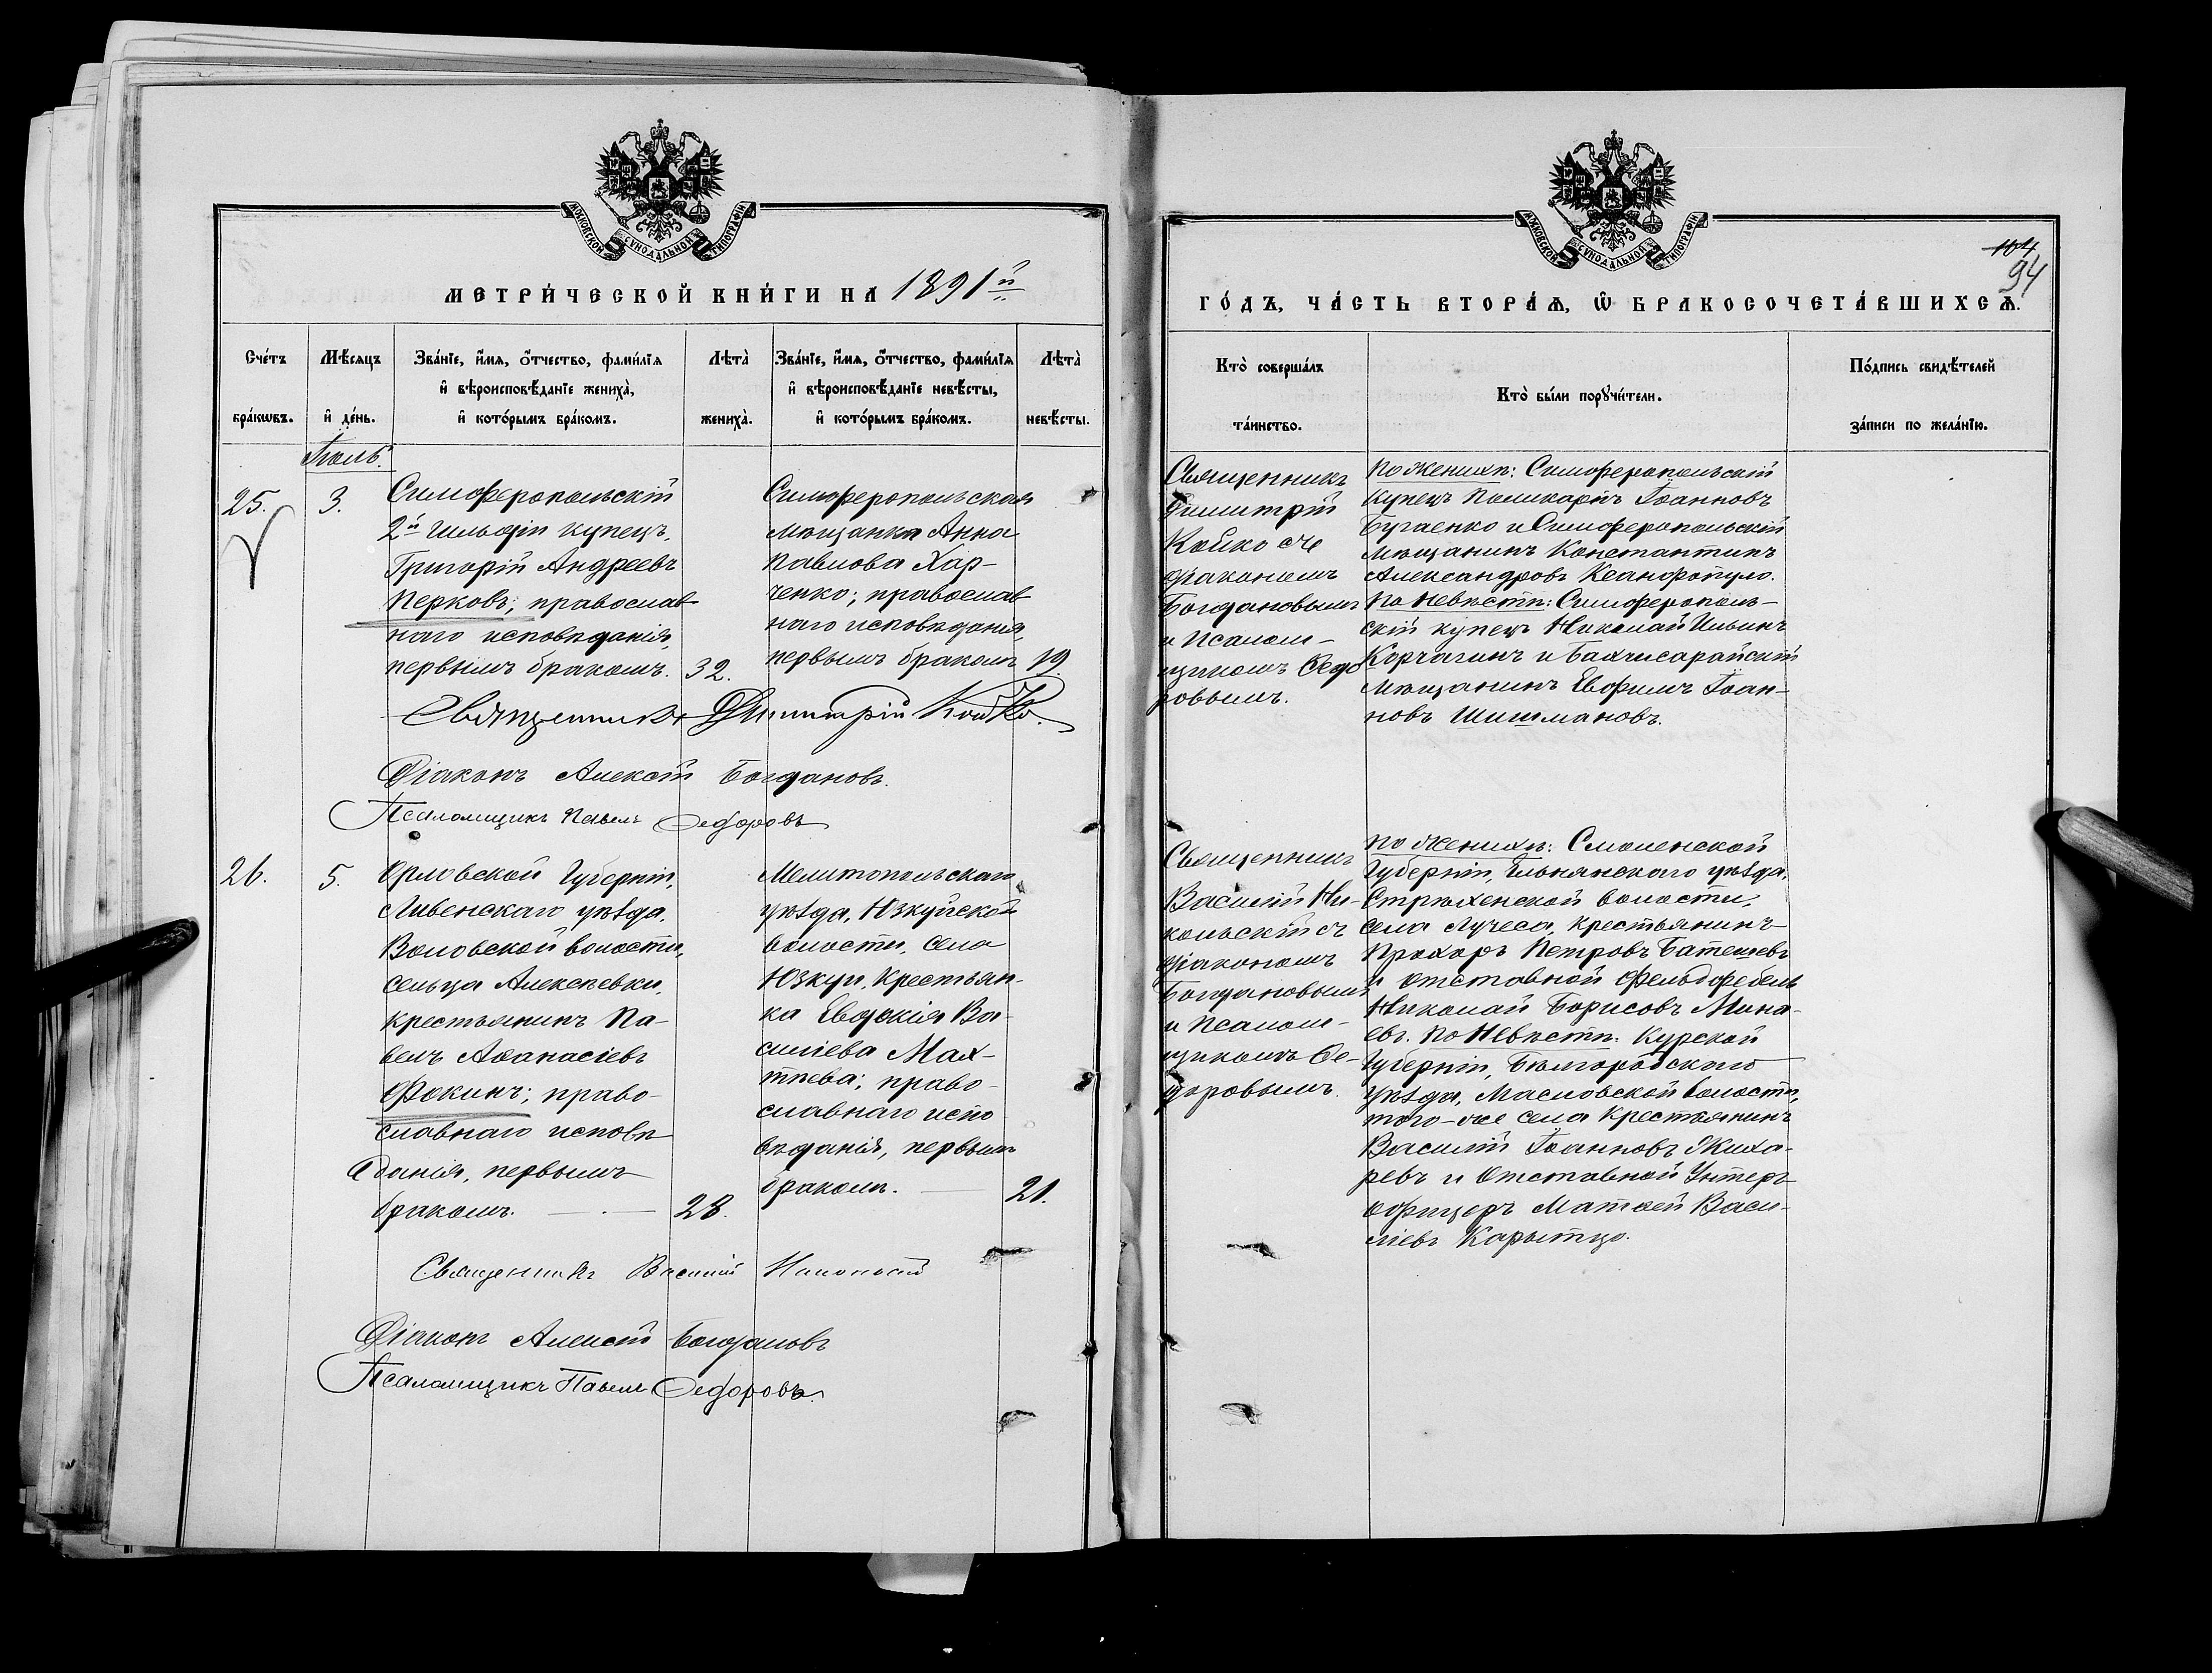 МОСКОВСКОЙ СУНОДАЛЬНОЙ ТИПОГРАФІИ
МЕТРИ́ЧЕСКОЙ КНИ́ГИ НА 1891й
Сче́тъ бра́кѡвъ.
Мѣ́сяцъ и҆ де́нь.
Зва́нїе, и҆́мя, ѻ҆́тчество, фами́лїя
и҆ вѣроисповѣ́данїе жениха̀,
и҆ кото́рымъ бра́комъ.
Лѣта̀ жениха̀.
Зва́нїе, и҆́мя, ѻ҆́тчество, фами́лїя
и҆ вѣроисповѣ́данїе невѣ́сты,
и҆ кото́рымъ бра́комъ.
Лѣта̀ невѣ́сты.
Іюль.
25.
3.
Симферопольскій
2й гильдіи купецъ,
Григорій Андреевъ
Перковъ; православ-
наго исповѣданія,
первымъ бракомъ.
32.
Симферопольская
мѣщанка Анна
Павлова Хар-
ченко; православ
наго исповѣданія,
первымъ бракомъ
19.
Священникъ Димитрій Койко.
Діаконъ Алексій Богдановъ.
Псаломщикъ Павелъ Ѳедоровъ
26.
5.
Орловской Губерніи,
Ливенскаго уѣзда,
Воловской волости,
сельца Алексѣевки,
крестьянинъ Па-
велъ Аѳанасіевъ
Фокинъ; право-
славнаго исповѣ
данія, первымъ
бракомъ.
28.
Мелитопольскаго
уѣзда, Юзкуйской
волости, села
Юзкуи, крестьян-
ка Евдокія Ва-
силіева Мах-
тѣева; право-
славнаго испо
вѣданія, первымъ
бракомъ.
21.
Священникъ Василій Никольскій
Діаконъ Алексій Богдановъ
Псаломщикъ Павелъ Ѳедоровъ.
МОСКОВСКОЙ СУНОДАЛЬНОЙ ТИПОГРАФІИ
104
94
ГО́ДЪ, ЧА́СТЬ ВТОРА́Я, Ѡ҆ БРАКОСОЧЕТА́ВШИХСЯ.
Кто̀ соверша́лъ та́инство.
Кто̀ бы́ли порꙋчи́тели.
По́дпись свидѣ́телей
за́писи по жела́нїю.
Священникъ
Димитрій
Койко съ
діакономъ
Богдановымъ
и псалом-
щикомъ Ѳедо
ровымъ.
По женихѣ: Симферопольскій
купецъ Поликарпъ Іоанновъ
Бугаенко и Симферопольскій
мѣщанинъ Константинъ
Александровъ Ксанфопуло.
По невѣстѣ: Симферополь-
скій купецъ Николай Ильинъ
Корчагинъ и Бахчисарайскій
мѣщанинъ Евфимъ Іоан-
новъ Шишмановъ.
Священникъ
Василій Ни-
кольскій съ
діакономъ
Богдановымъ
и псалом-
щикомъ Ѳе-
доровымъ.
По женихѣ: Смоленской
Губерніи, Ельнянскаго уѣзда,
волости,
села Лучеса, крестьянинъ
Прохоръ Петровъ Батешевъ
и отставной фельдфебель
Николай Борисовъ Мина-
евъ. По невѣстѣ: Курской
Губерніи, Бѣлгородскаго
уѣзда, Масловской волости,
того-же села крестьянинъ
Василій Іоанновъ Жиха-
ревъ и отставной Унтеръ
офицеръ Матѳей Васи-
ліевъ